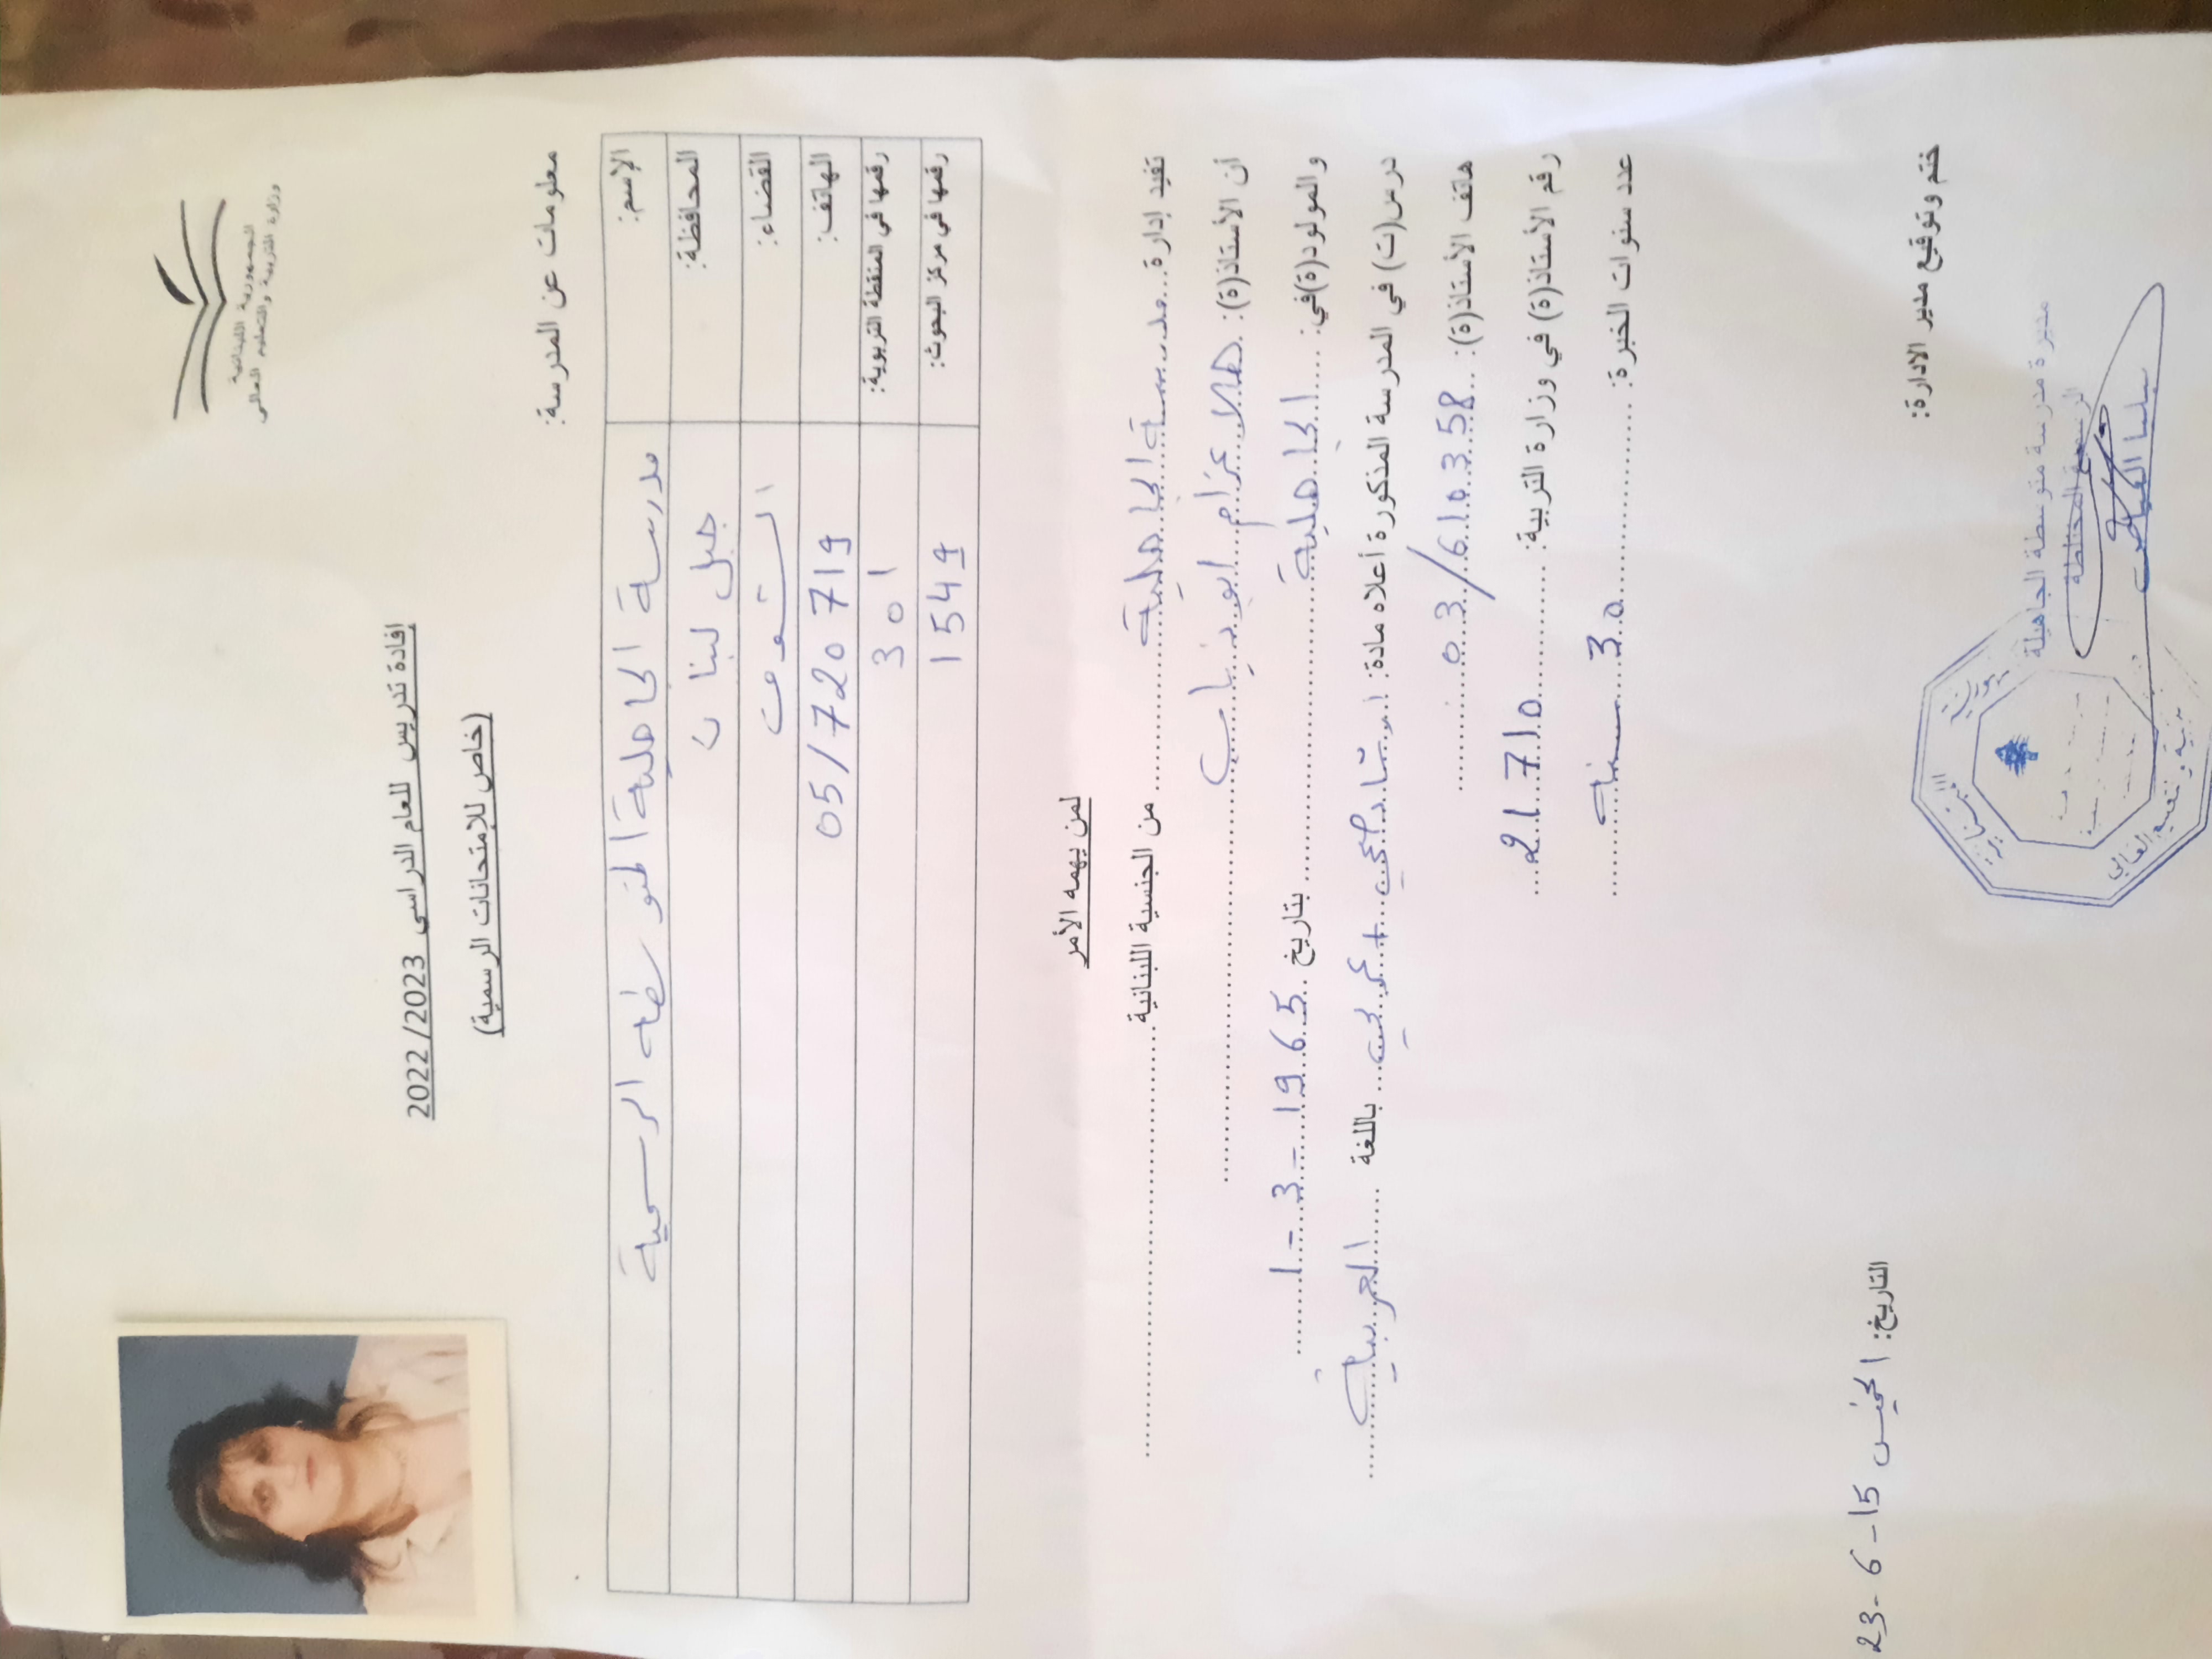 الجمهورية اللبنانية
وزارة التربية والتعليم العالي
إفادة تدريس للعام الدراسي 2022/2023
(خاص للإمتحانات الرسمية)
معلومات عن المدرسة:
الإسم: مدرسة الجاهلية المتوسطة الرسمية
المحافظة: جبل لبنان
القضاء: الشوف
الهاتف: 05/720719
رقمها في المنطقة التربوية: 301
رقمها في مركز البحوث: 1549
لمن يهمه الأمر
تفيد إدارة مدرسة الجاهلية من الجنسية اللبنانية
أن الأستاذ(ة): هلا عزام ابو ذياب
والمولود(ة)في: الجاهلية بتاريخ 1-3-1965
درس(ت) في المدرسة المذكورة أعلاه مادة: + باللغة العربية
هاتف الأستاذ(ة): 03/610358
رقم الأستاذ(ة) في وزارة التربية: 21710
عدد سنوات الخبرة: 30 سنة
التاريخ: الخميس 15-6-23
ختم وتوقيع مدير الادارة:
مديرة مدرسة متوسطة الجاهلية
الرسمية المختلطة